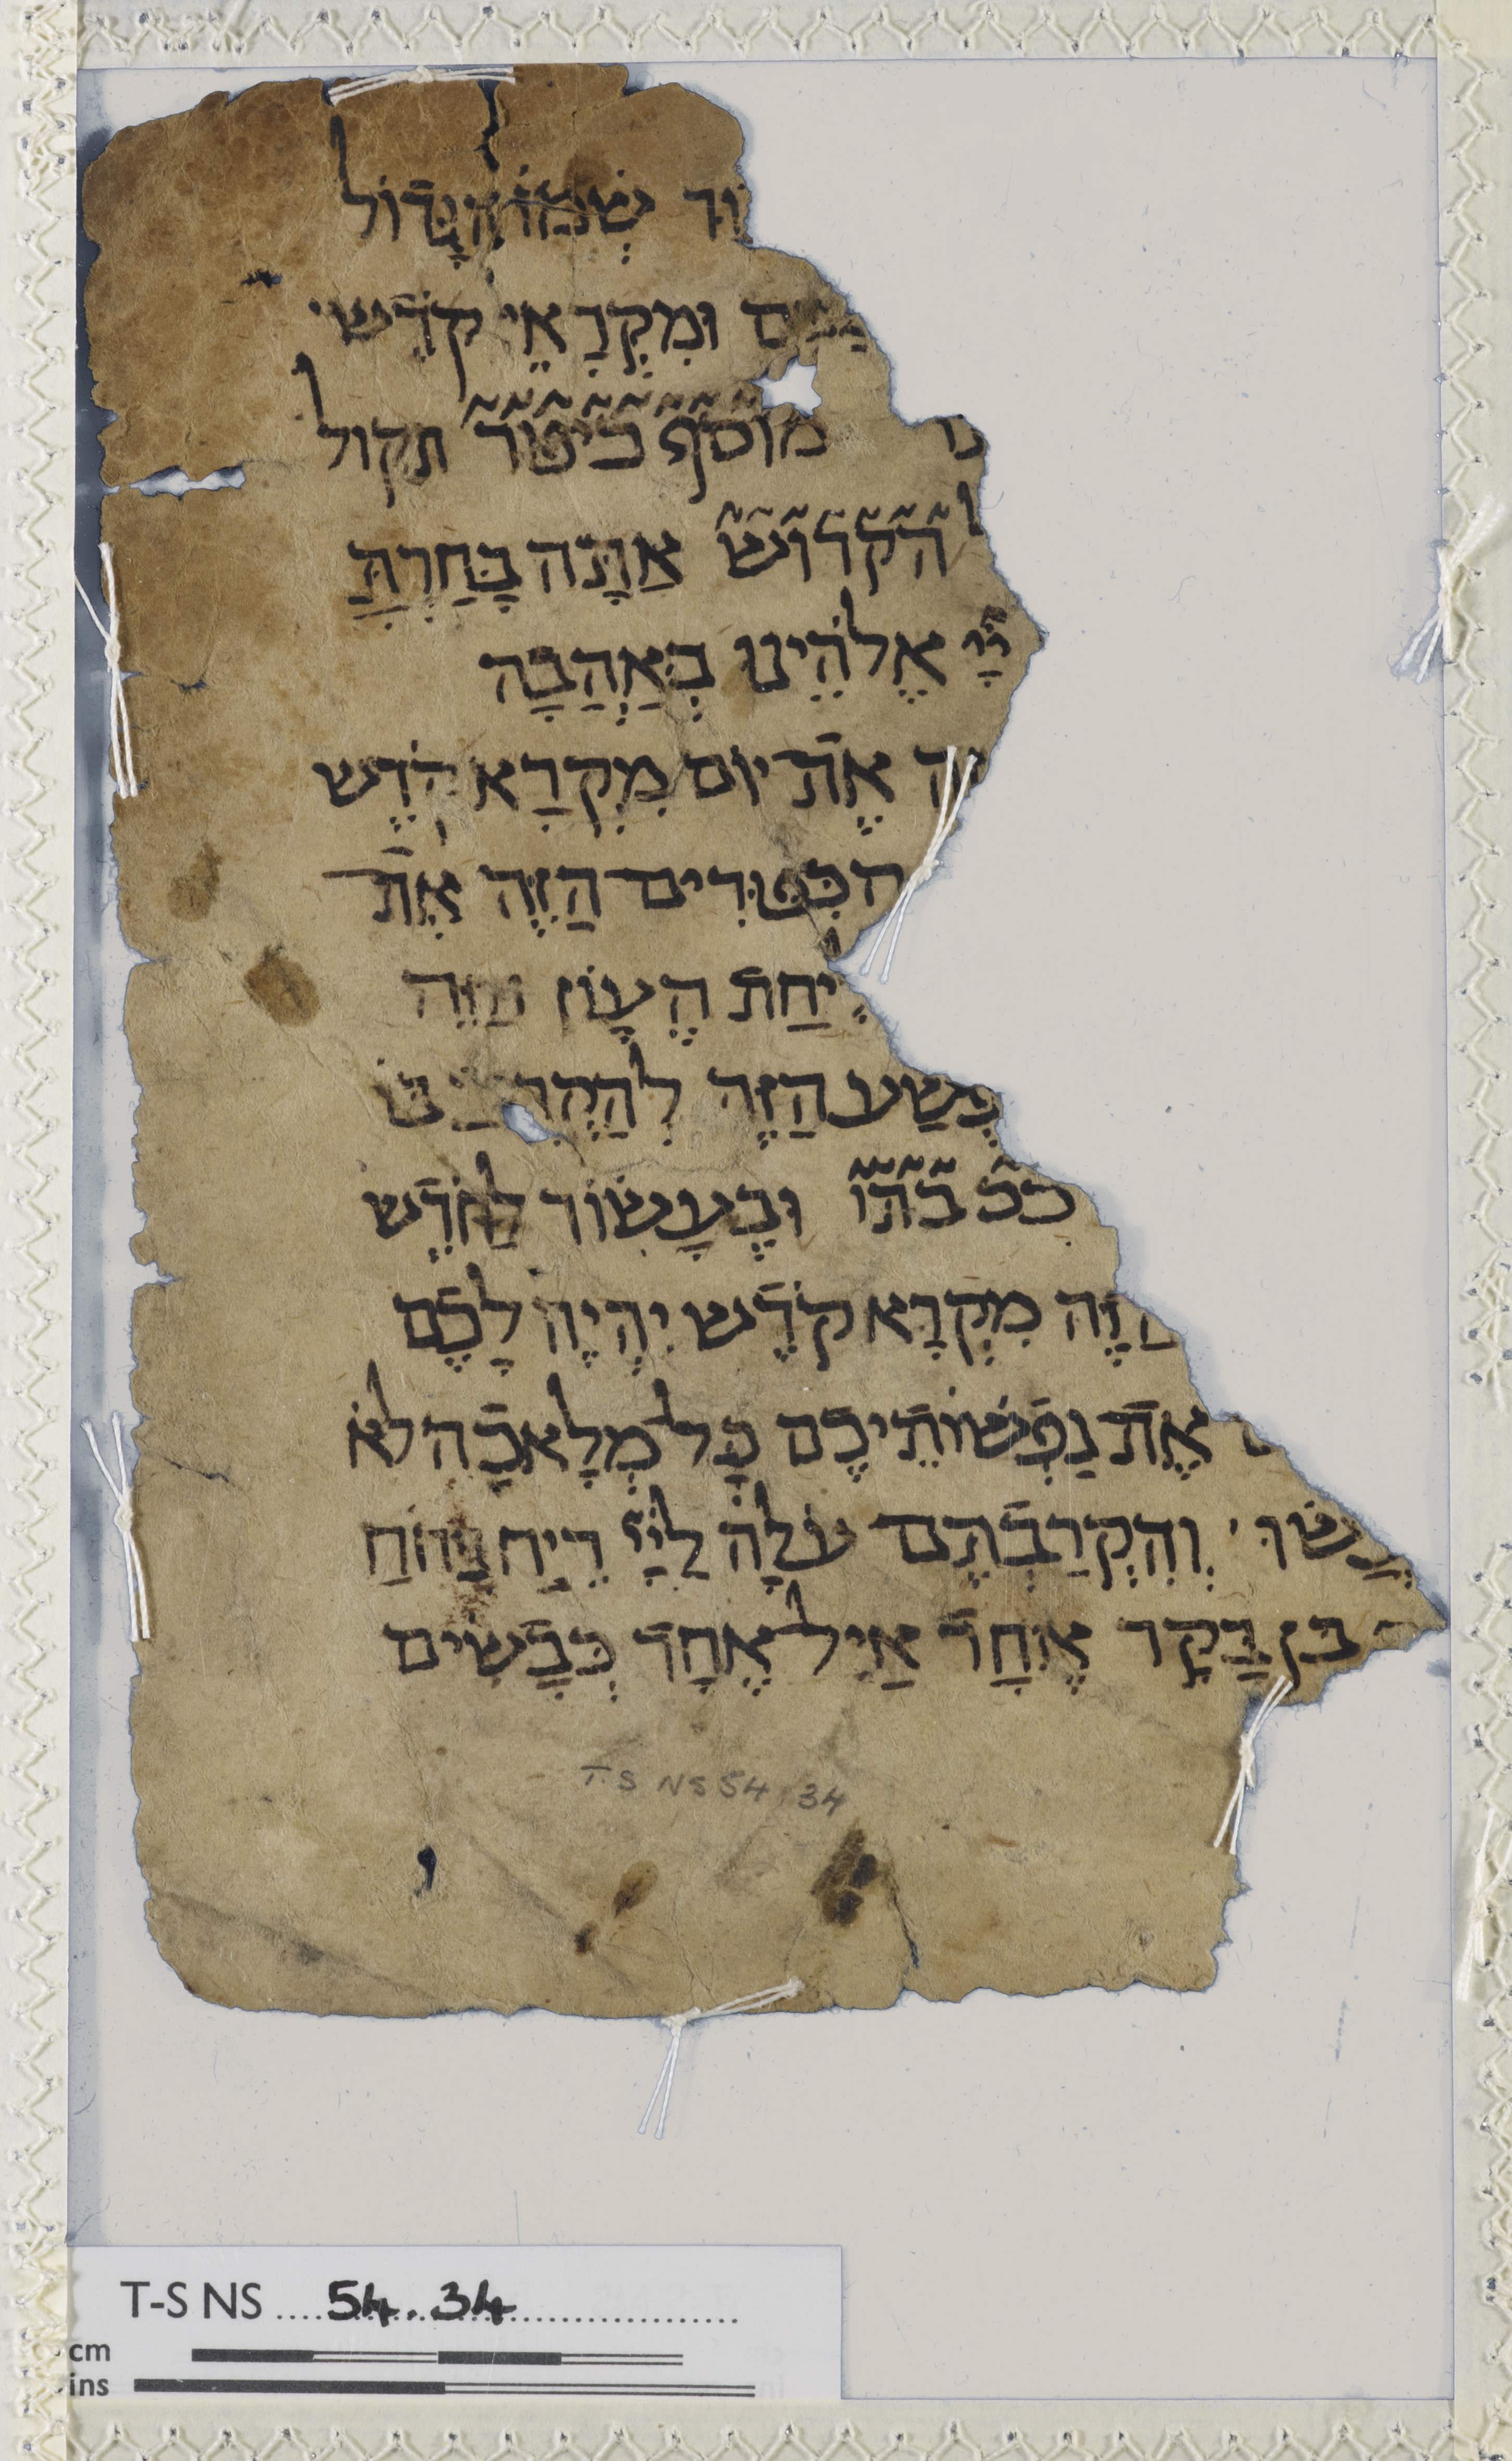 וֹד שְׁמוֹ הַגָּדוֹל
וּמִקְרָאֵי קֹדֶשׁ
נו מוסף כיפור תקול
הקדוש אַתָּה בָּחַרְתָּ
יְיָ אֱלֹהֵינוּ בְּאַהֲבָה
אֶת יוֹם מִקְרָא קֹדֶשׁ
הכִּפּוּרִים הַזֶּה אֶת
יחַת הֶעָוֹן הַזֶּה
פֶּשַׁע הַזֶּה לְהַקְרִ
ככ בתו וּבֶעָשׂוֹר לַחֹדֶשׁ
הַזֶּה מִקְרָא קֹדֶשׁ יִהְיֶה לָכֶם
אֶת נַפְשׁוֹתֵיכֶם כָּל מְלָאכָה לֹא
תַעֲשׂוּ וְהִקְרַבְתֶּם עֹלָה לַיְיָ רֵיחַ נִיחֹחַ
בן בָּקָר אֶחָד אַיִל אֶחָד כְּבָשִׂים
T-S NS 54 34
T-S NS .... 54 . 34
cm
ins